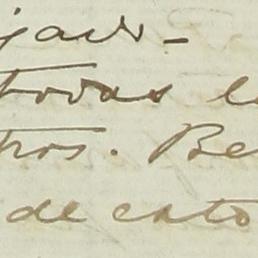 jado-
todas l
tros. Be
de esto